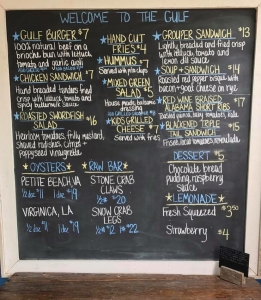 WELCOME TO THE GULF
GULF BURGER $7
100% natural beef on a
brioche bun with lettuce,
tomato, and garlic aioli
CHICKEN SANDWICH $7
Hand breaded tenders fried
crisp with lettuce, tomato and
spicy buttermilk sauce
ROASTED SWORDFISH
SALAD $16
Heirloom tomatoes, frilly mustard,
shaved radishes, citrus +
poppyseed vinaigrette
HAND CUT
FRIES $4
HUMMUS $7
Served with pita chips
MIXED GREEN
SALAD $5
House made balsamic
dressing
KIDS GRILLED
CHEESE $7
Served with fries
GROUPER SANDWICH $13
Lightly breaded and fried crisp
with lettuce, tomato and
lemon dill sauce
SOUP + SANDWICH $14
Roasted red pepper bisque with
bacon + goat cheese on rye
RED WINE BRAISED
ALABAMA SHORT RIBS $17
BLACKENED TRIPLE
TAIL SANDWICH $15
OYSTERS
PETITE BEACH, VA
1/2 dz $11 1 dz $19
VIRGINICA, LA
1/2 dz $11 1 dz $19
RAW BAR
STONE CRAB
CLAWS
1/2 lb $20
SNOW CRAB
LEGS
1/2 lb $12 1 lb $22
DESSERT $5
Chocolate bread
pudding, raspberry
sauce
LEMONADE
Fresh Squeezed $3.50
Strawberry $4